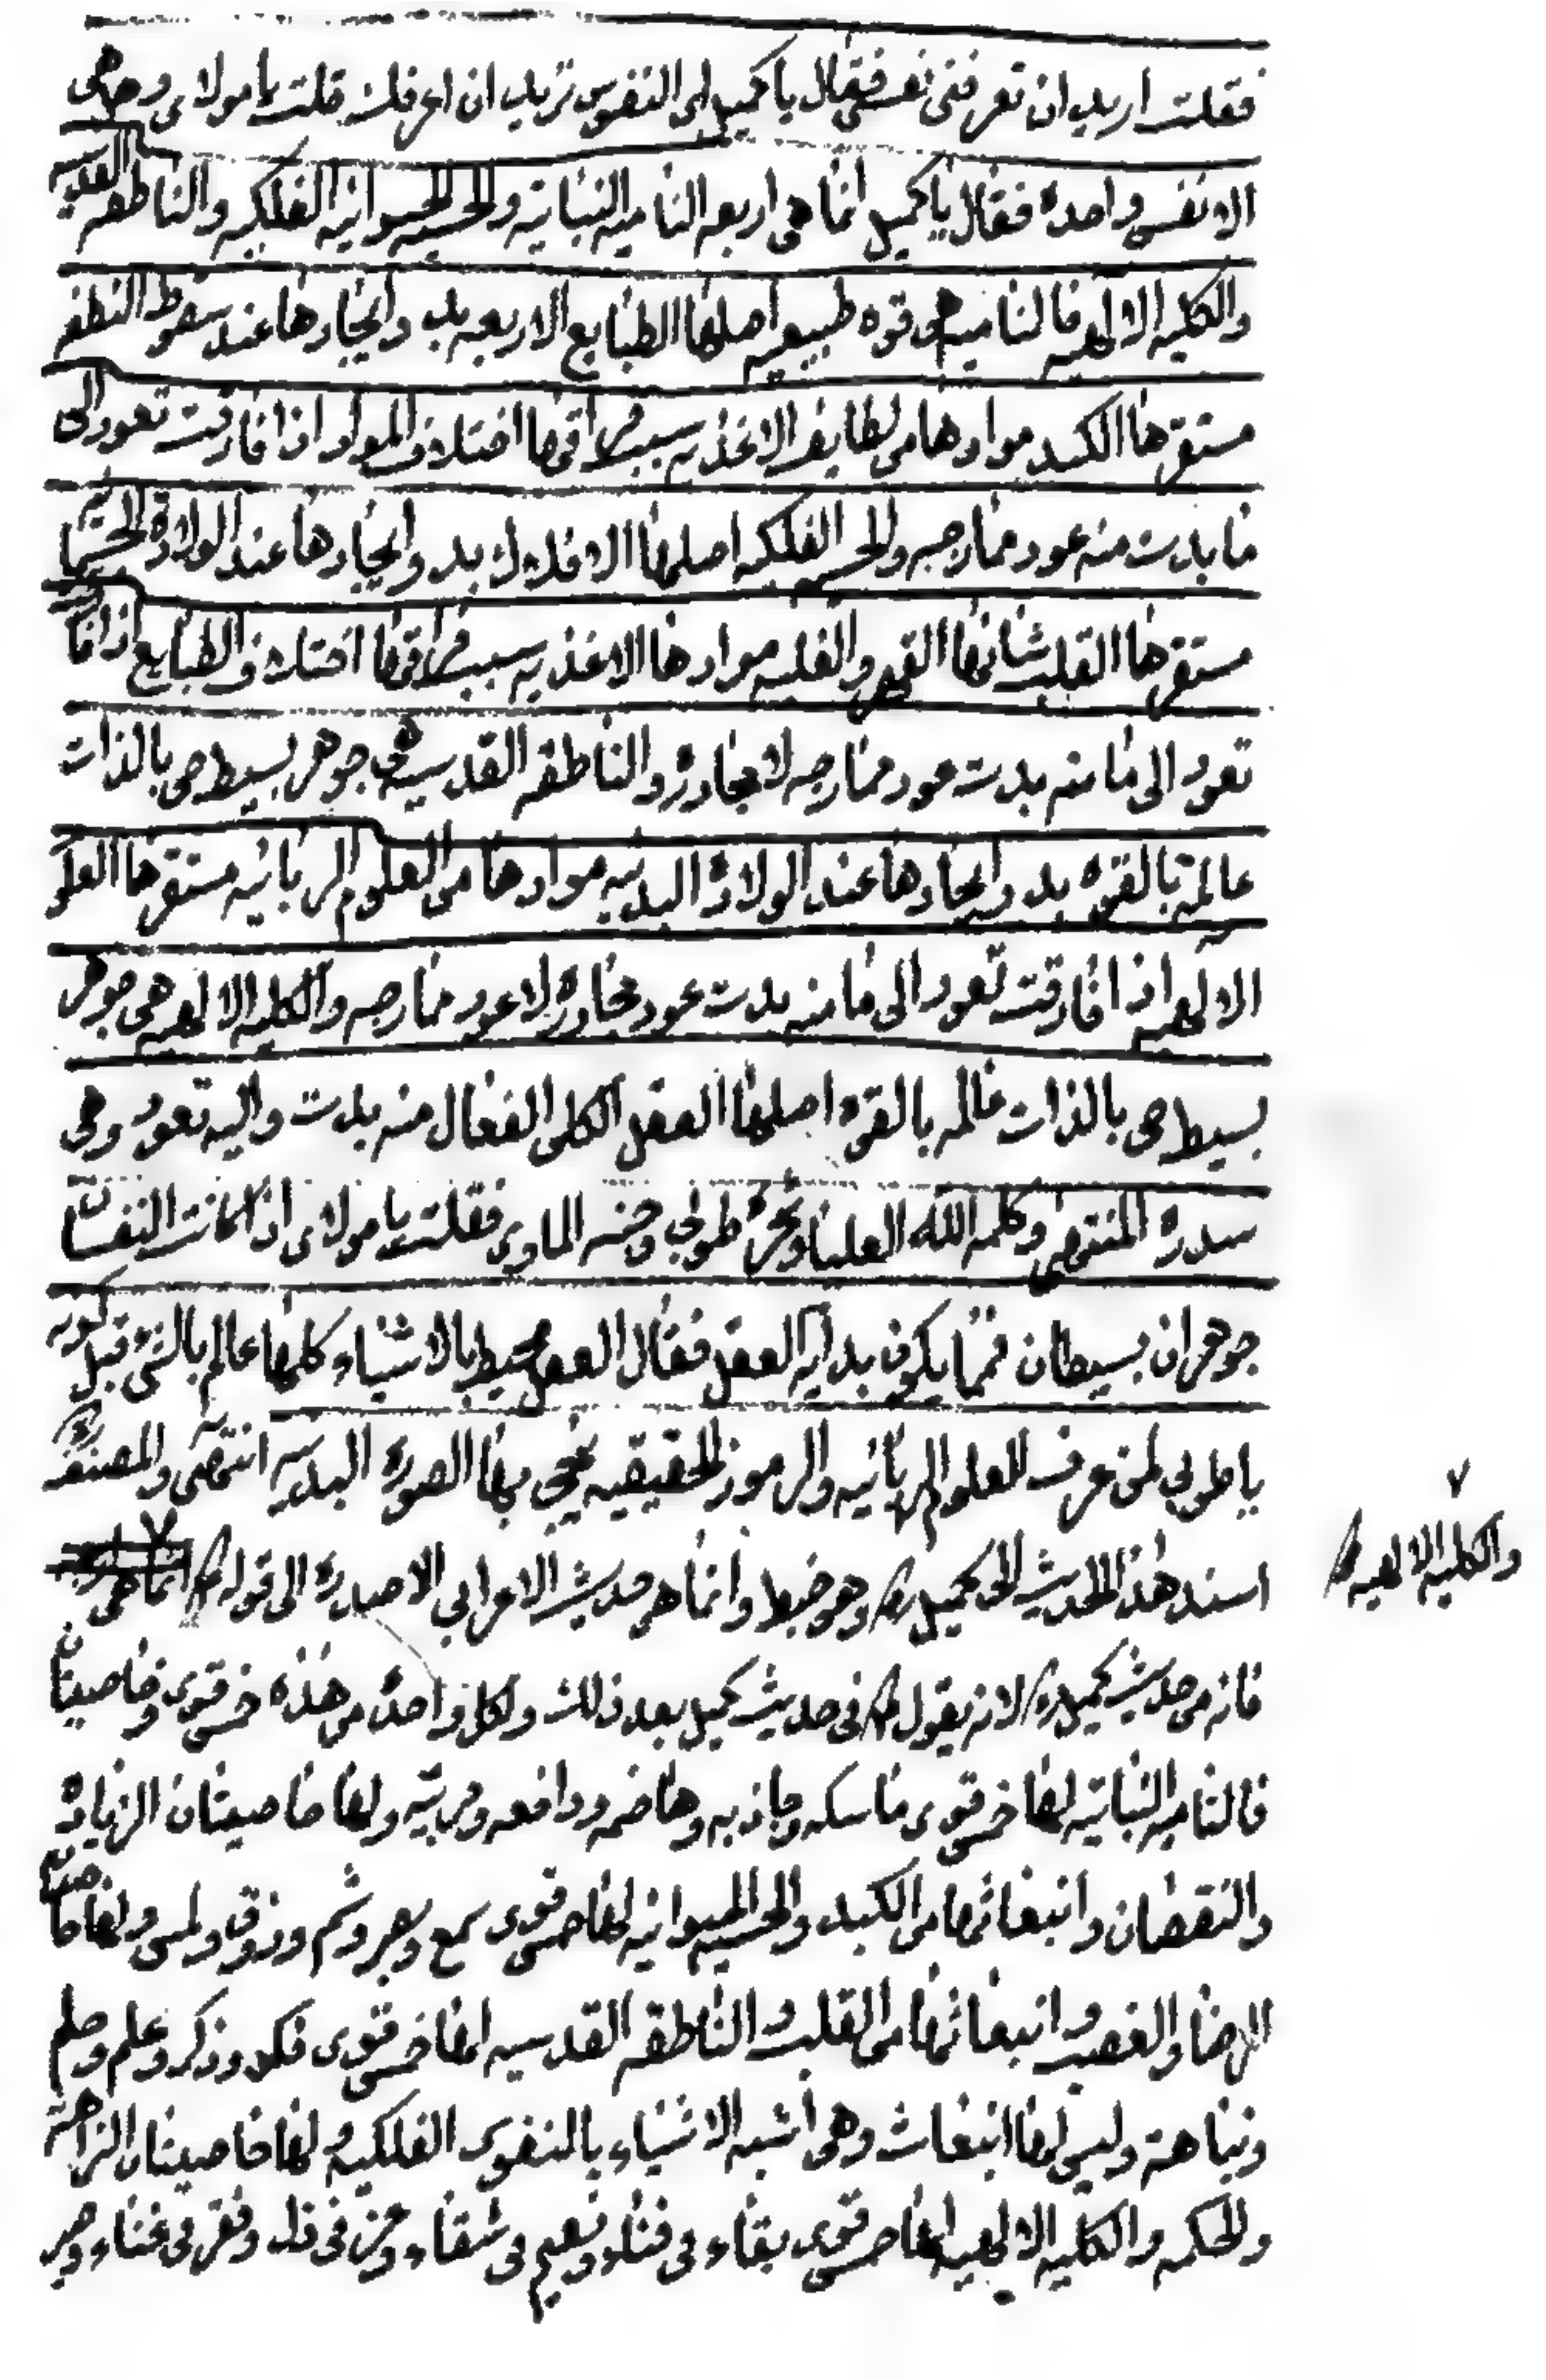 فقلت اريد ان تعرفنى نفسى فقال يا كميل اى النفوس تريد ان اعرفك قلت يا مولاى وهل هى
الا نفس واحدة فقال يا كميل انما هى اربعه الناميه النباتية والحسيه الحيوانيه الفلكيه والناطقه القدسيه
والكليه الالهيه فالناميه هى قوه طبيعيه اصلها الطبايع الاربعه بدو ايجادها عند سقوط النطفه
مستقرها الكبد موادها من لطايف الاغذيه سبب فراقها اختلاف المواد اذا فارقت تعود الى
ما بدت منه عود ممازجه والحسيه الفلكيه اصلها الافلاك بدو ايجادها عند الولادة الجسمانيه
مستقرها القلب شانها القهر والغلبه موادها الاغذيه سبب فراقها اختلاف الطبايع اذا فارقت
تعود الى ما منه بدت عود ممازجه لا مجاورة والناطقه القدسيه هى جوهر بسيط حى بالذات
عالمة بالقوه بدو ايجادها عند الولادة البدنيه موادها من العلوم الربانيه مستقرها العلوم
الالهيه اذا فارقت تعود الى ما منه بدت عود مجاورة لا عود ممازجه والكليه الالهيه هى جوهر
بسيط حى بالذات عالمه بالقوه اصلها العقل الكلى الفعال منه بدت واليه تعود وهى
سدرة المنتهى وكلمه الله العليا وشجرة طوبى وجنه الماوى فقلت يا مولاى اذا كانت النفسان
جوهران بسيطان فمما يكون بداية العقل فقال العقل محيط بالاشياء كلها عالم بالشىء قبل كونه
يا طوبى لمن عرف العلوم الربانيه والرموز الحقيقيه نجى بها الصورة البدنيه انتهى والمصنف ره
اسند هذا الحديث الى كميل ره وهو خبط وانما هو حديث الاعرابى الا صدره الى قوله انما هى
والكليه الالهيه
فانه من حديث كميل ره لانه يقول فى حديث كميل بعد ذلك ولكل واحدة من هذه خمس قوى وخاصيتان
فالناميه النباتيه لها خمس قوى ماسكه وجاذبه وهاضمه ودافعه ومربيه ولها خاصيتان الزيادة
والنقصان وانبعاثها من الكبد والحسيه الحيوانيه لها خمس قوى سمع وبصر وشم وذوق ولمس ولها خاصيتان
الرضا والغضب وانبعاثها من القلب والناطقه القدسيه لها خمس قوى فكر وذكر وعلم وحلم
ونباهة وليس لها انبعاث وهى اشبه الاشياء بالنفوس الفلكيه ولها خاصيتان النزاهة
والحكمه والكليه الالهيه لها خمس قوى بقاء فى فناء ونعيم فى شقاء وعز فى ذل وفقر فى غناء وصبر